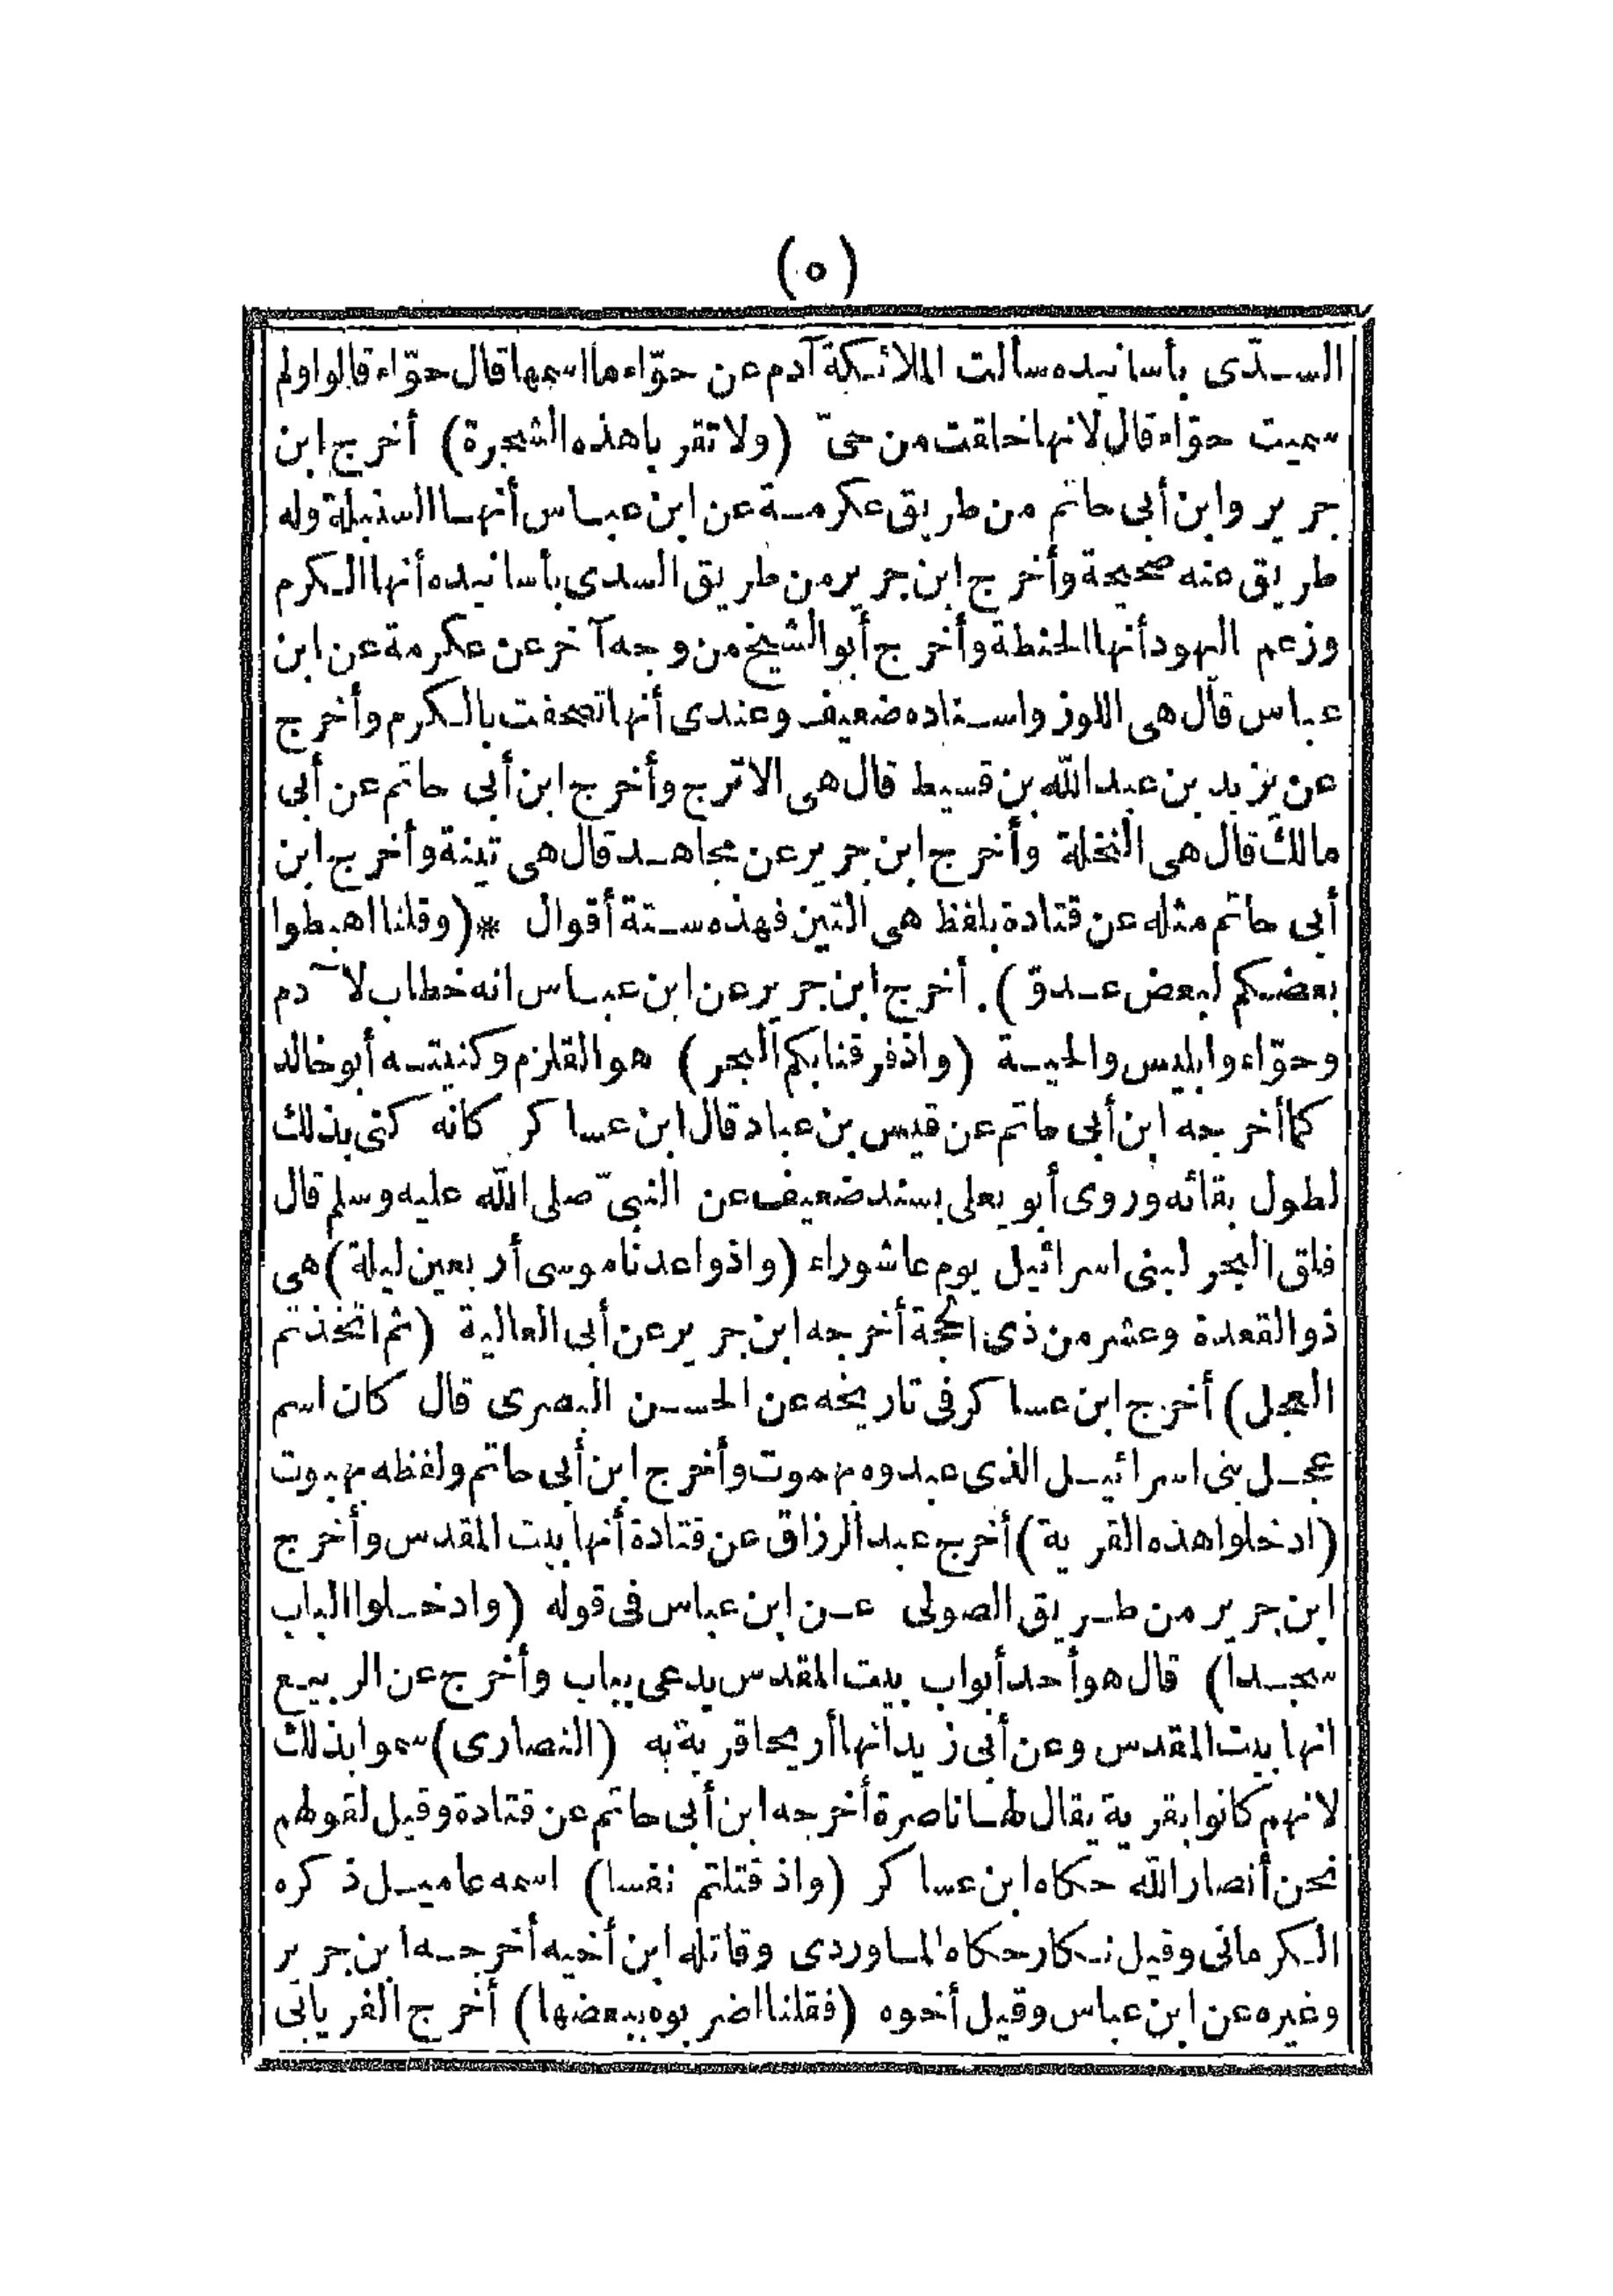 (٥)
السدّى بأسانيده سألت الملائكة آدم عن حوّاء ما اسمها قال حوّاء قالوا ولم
سميت حوّاء قال لانها خلقت من حىّ (ولا تقر باهذه الشجرة) أخرج ابن
جرير وابن أبى حاتم من طريق عكرمة عن ابن عباس أنها السنبلة وله
طريق عنه صحيحة وأخرج ابن جرير من طريق السدى بأسانيده أنها الكرم
وزعم اليهود أنها الحنطة وأخرج أبو الشيخ من وجه آخر عن عكرمة عن ابن
عباس قال هى اللوز واسناده ضعيف وعندى أنها تصحفت بالكرم وأخرج
عن يزيد بن عبد الله بن قسيط قال هى الاترج وأخرج ابن أبى حاتم عن أبى
مالك قال هى النخلة وأخرج ابن جرير عن مجاهد قال هى تينة وأخرج ابن
أبى حاتم مثله عن قتادة بلفظ هى التين فهذه ستة أقوال *(وقلنا اهبطوا
بعضكم لبعض عدوّ). أخرج ابن جرير عن ابن عباس انه خطاب لآدم
وحوّاء وابليس والحية (واذ فرقنا بكم البحر) هو القلزم وكنيته أبو خالد
كما أخرجه ابن أبى حاتم عن قيس بن عباد قال ابن عساكر كانه كنى بذلك
لطول بقائه وروى أبو يعلى بسند ضعيف عن النبىّ صلى الله عليه وسلم قال
فلق البحر لبنى اسرائيل يوم عاشوراء (واذ واعدنا موسى أربعين ليلة) هى
ذو القعدة وعشر من ذى الحجة أخرجه ابن جرير عن أبى العالية (ثم اتخذتم
العجل) أخرج ابن عساكر فى تاريخه عن الحسن البصرى قال كان اسم
عجل بنى اسرائيل الذى عبدوه بهموت وأخرج ابن أبى حاتم ولفظه بهبوت
(ادخلوا هذه القرية) أخرج عبد الرزاق عن قتادة أنها بيت المقدس وأخرج
ابن جرير من طريق الصولى عن ابن عباس فى قوله (وادخلوا الباب
سجدا) قال هو أحد أبواب بيت المقدس يدعى بباب وأخرج عن الربيع
انها بيت المقدس وعن أبى زيد انها أريحا قرية به (النصارى) سموا بذلك
لانهم كانوا بقرية يقال لها ناصرة أخرجه ابن أبى حاتم عن قتادة وقيل لقولهم
نحن أنصار الله حكاه ابن عساكر (واذ قتلتم نفسا) اسمه عاميل ذكره
الكرمانى وقيل نكار حكاه الماوردى وقاتله ابن أخيه أخرجه ابن جرير
وغيره عن ابن عباس وقيل أخوه (فقلنا اضربوه ببعضها) أخرج الفريابى